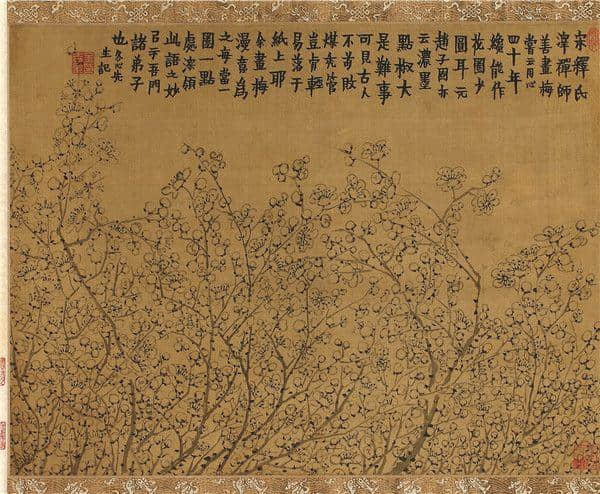 宋釋氏
澤禪師
善畫梅
嘗云用心
四十年
纔能作
花圈少
圓耳元
趙子固亦
云濃墨
點椒大
是難事
可見古人
不苟敗
煤禿管
豈肯輕
易落于
紙上耶
余畫梅
漫喜為
之每當一
圈一點
處深領
此語之妙
㠯示吾門
諸弟子
也冬心先
生記